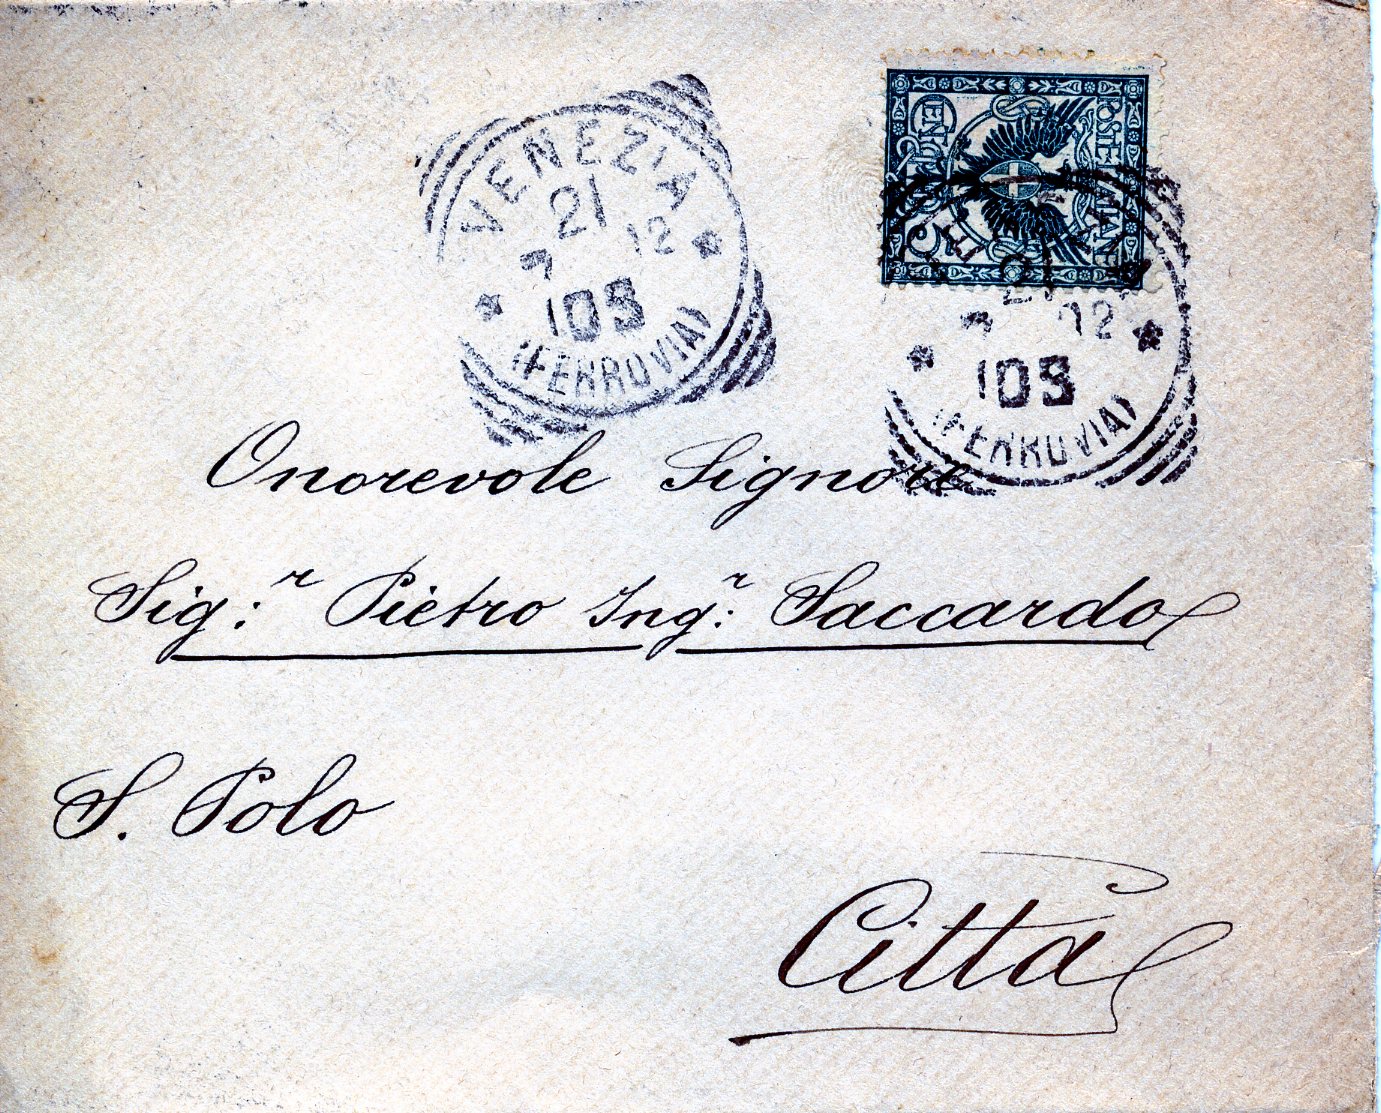 VENEZIA
21
7 12
103
(FERROVIA)
POSTE ITALIANE
CENT. 2
21
7 12
103
(FERROVIA)
Onorevole Signore
Sig:r Pietro Ing:r Saccardo
S. Polo
Città